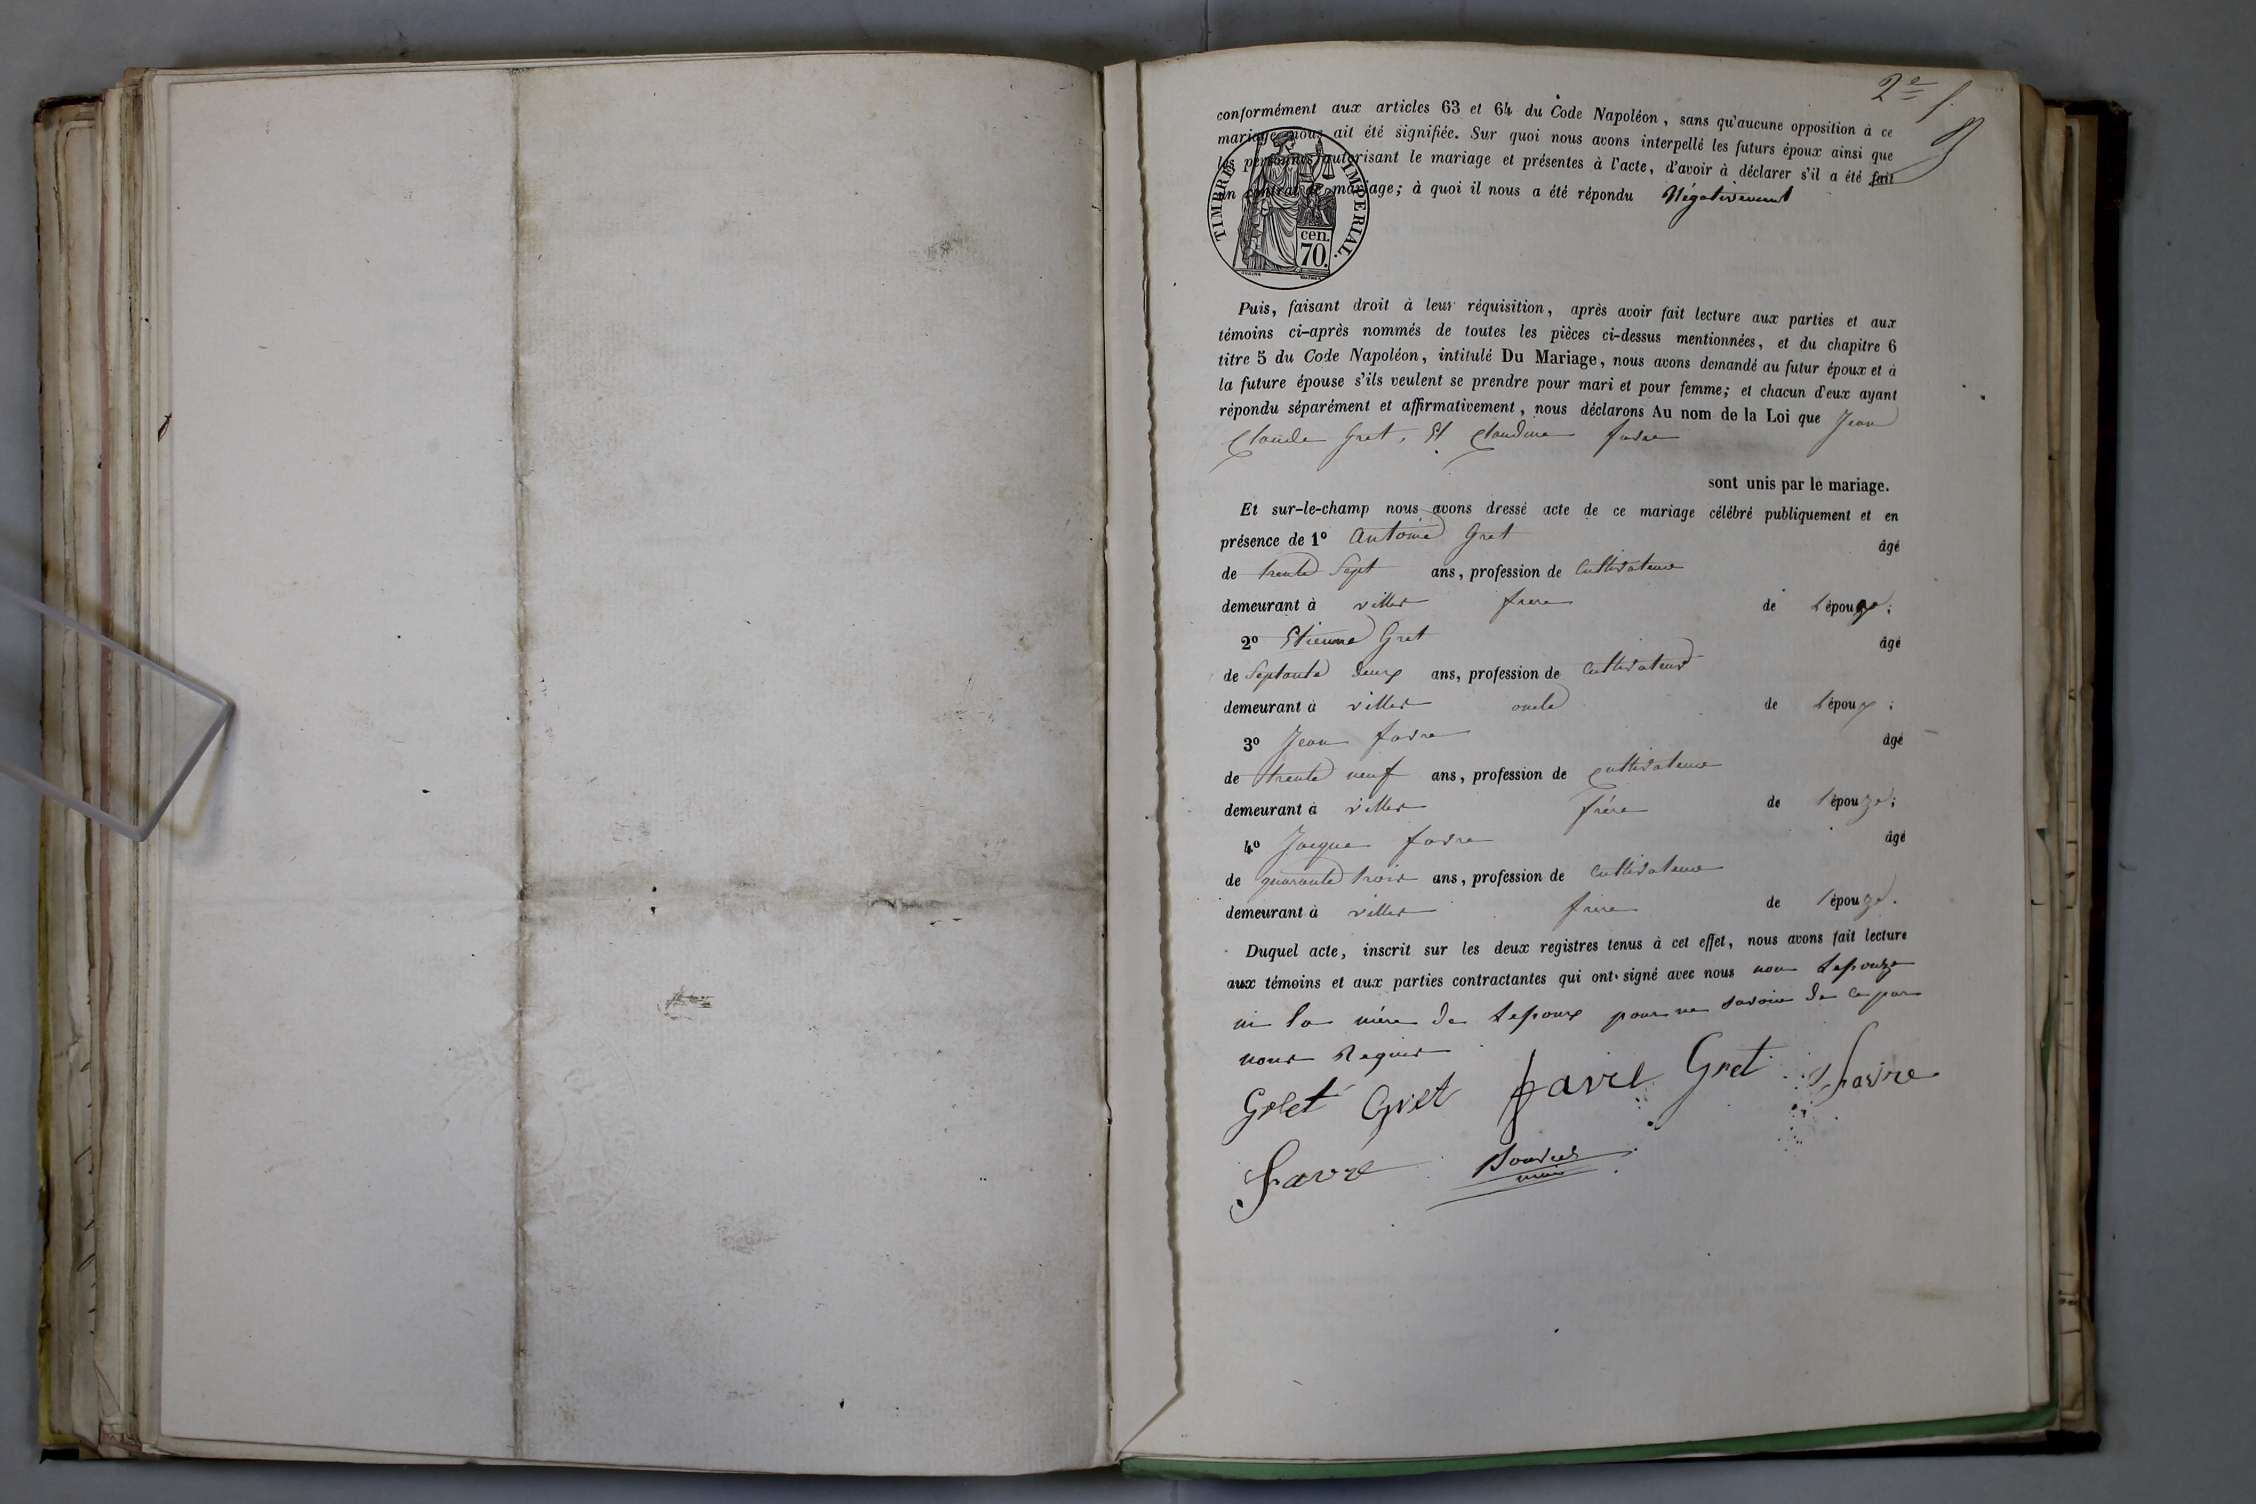 2e
conformément aux articles 63 et 64 du Code Napoléon, sans qu'aucune opposition à ce
mariage nous ait été signifiée. Sur quoi nous avons interpellé les futurs époux ainsi que
les personnes autorisant le mariage et présentes à l'acte, d'avoir à déclarer s'il a été fait
un contrat de mariage; à quoi il nous a été répondu Négativement
TIMBRE IMPERIAL.
cen.
70.
Puis, faisant droit à leur réquisition, après avoir fait lecture aux parties et aux
témoins ci-après nommés de toutes les pièces ci-dessus mentionnées, et du chapitre 6
titre 5 du Code Napoléon, intitulé Du Mariage, nous avons demandé au futur époux et à
la future épouse s'ils veulent se prendre pour mari et pour femme; et chacun d'eux ayant
répondu séparément et affirmativement, nous déclarons Au nom de la Loi que Jean
Claude Gret, Et Claudine favre
sont unis par le mariage.
Et sur-le-champ nous avons dressé acte de ce mariage célébré publiquement et en
présence de 1º Antoine Gret âgé
de trente Sept ans, profession de Cultivateur
demeurant à villes frere de l'épouze;
2º Etienne Gret âgé
de Septante deux ans, profession de Cultivateur
demeurant à villes oncle de l'époux;
3º Jean favre âgé
de trente neuf ans, profession de Cultivateur
demeurant à villes frére de l'épouze;
4º Jacque favre âgé
de quarante trois ans, profession de Cultivateur
demeurant à villes frere de l'épouze.
Duquel acte, inscrit sur les deux registres tenus à cet effet, nous avons fait lecture
aux témoins et aux parties contractantes qui ont signé avec nous non Lepouze
ni la mére de Lepoux pour ne savoir de ce par
nous Requis
Gret Gret favre Gret favre
favre